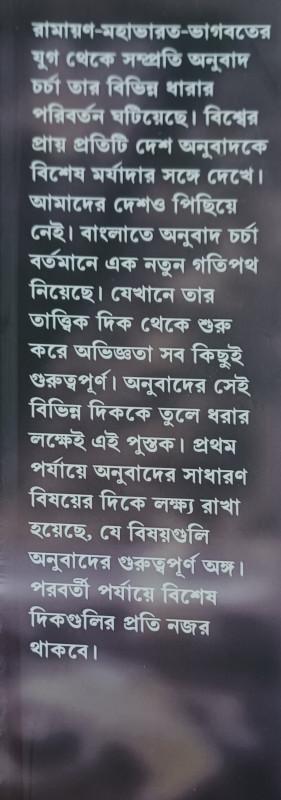 রামায়ণ-মহাভারত-ভাগবতের
যুগ থেকে সম্প্রতি অনুবাদ
চর্চা তার বিভিন্ন ধারার
পরিবর্তন ঘটিয়েছে। বিশ্বের
প্রায় প্রতিটি দেশ অনুবাদকে
বিশেষ মর্যাদার সঙ্গে দেখে।
আমাদের দেশও পিছিয়ে
নেই। বাংলাতে অনুবাদ চর্চা
বর্তমানে এক নতুন গতিপথ
নিয়েছে। যেখানে তার
তাত্ত্বিক দিক থেকে শুরু
করে অভিজ্ঞতা সব কিছুই
গুরুত্বপূর্ণ। অনুবাদের সেই
বিভিন্ন দিককে তুলে ধরার
লক্ষেই এই পুস্তক। প্রথম
পর্যায়ে অনুবাদের সাধারণ
বিষয়ের দিকে লক্ষ্য রাখা
হয়েছে, যে বিষয়গুলি
অনুবাদের গুরুত্বপূর্ণ অঙ্গ।
পরবর্তী পর্যায়ে বিশেষ
দিকগুলির প্রতি নজর
থাকবে।